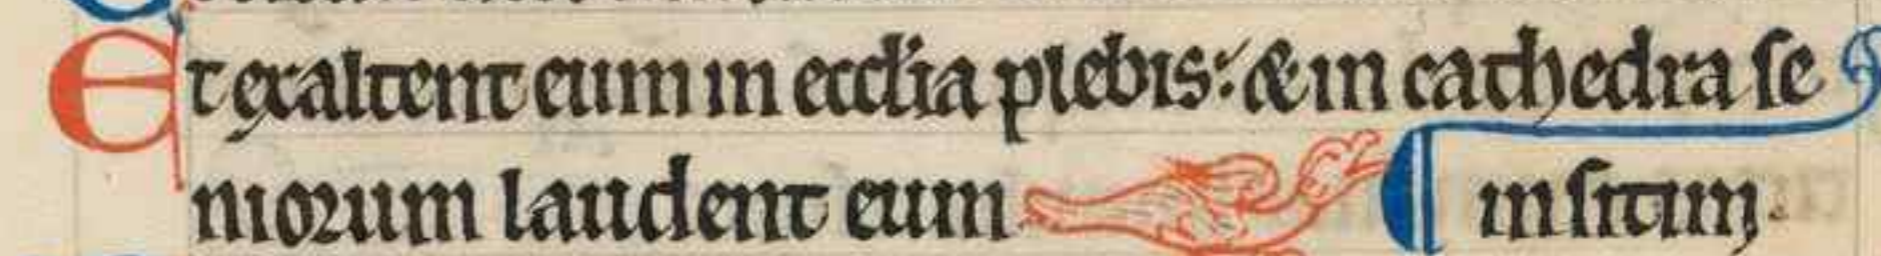 Et exaltent eum in ecclia plebis: & in cathedra se
niorum laudent eum ¶ in sitim.